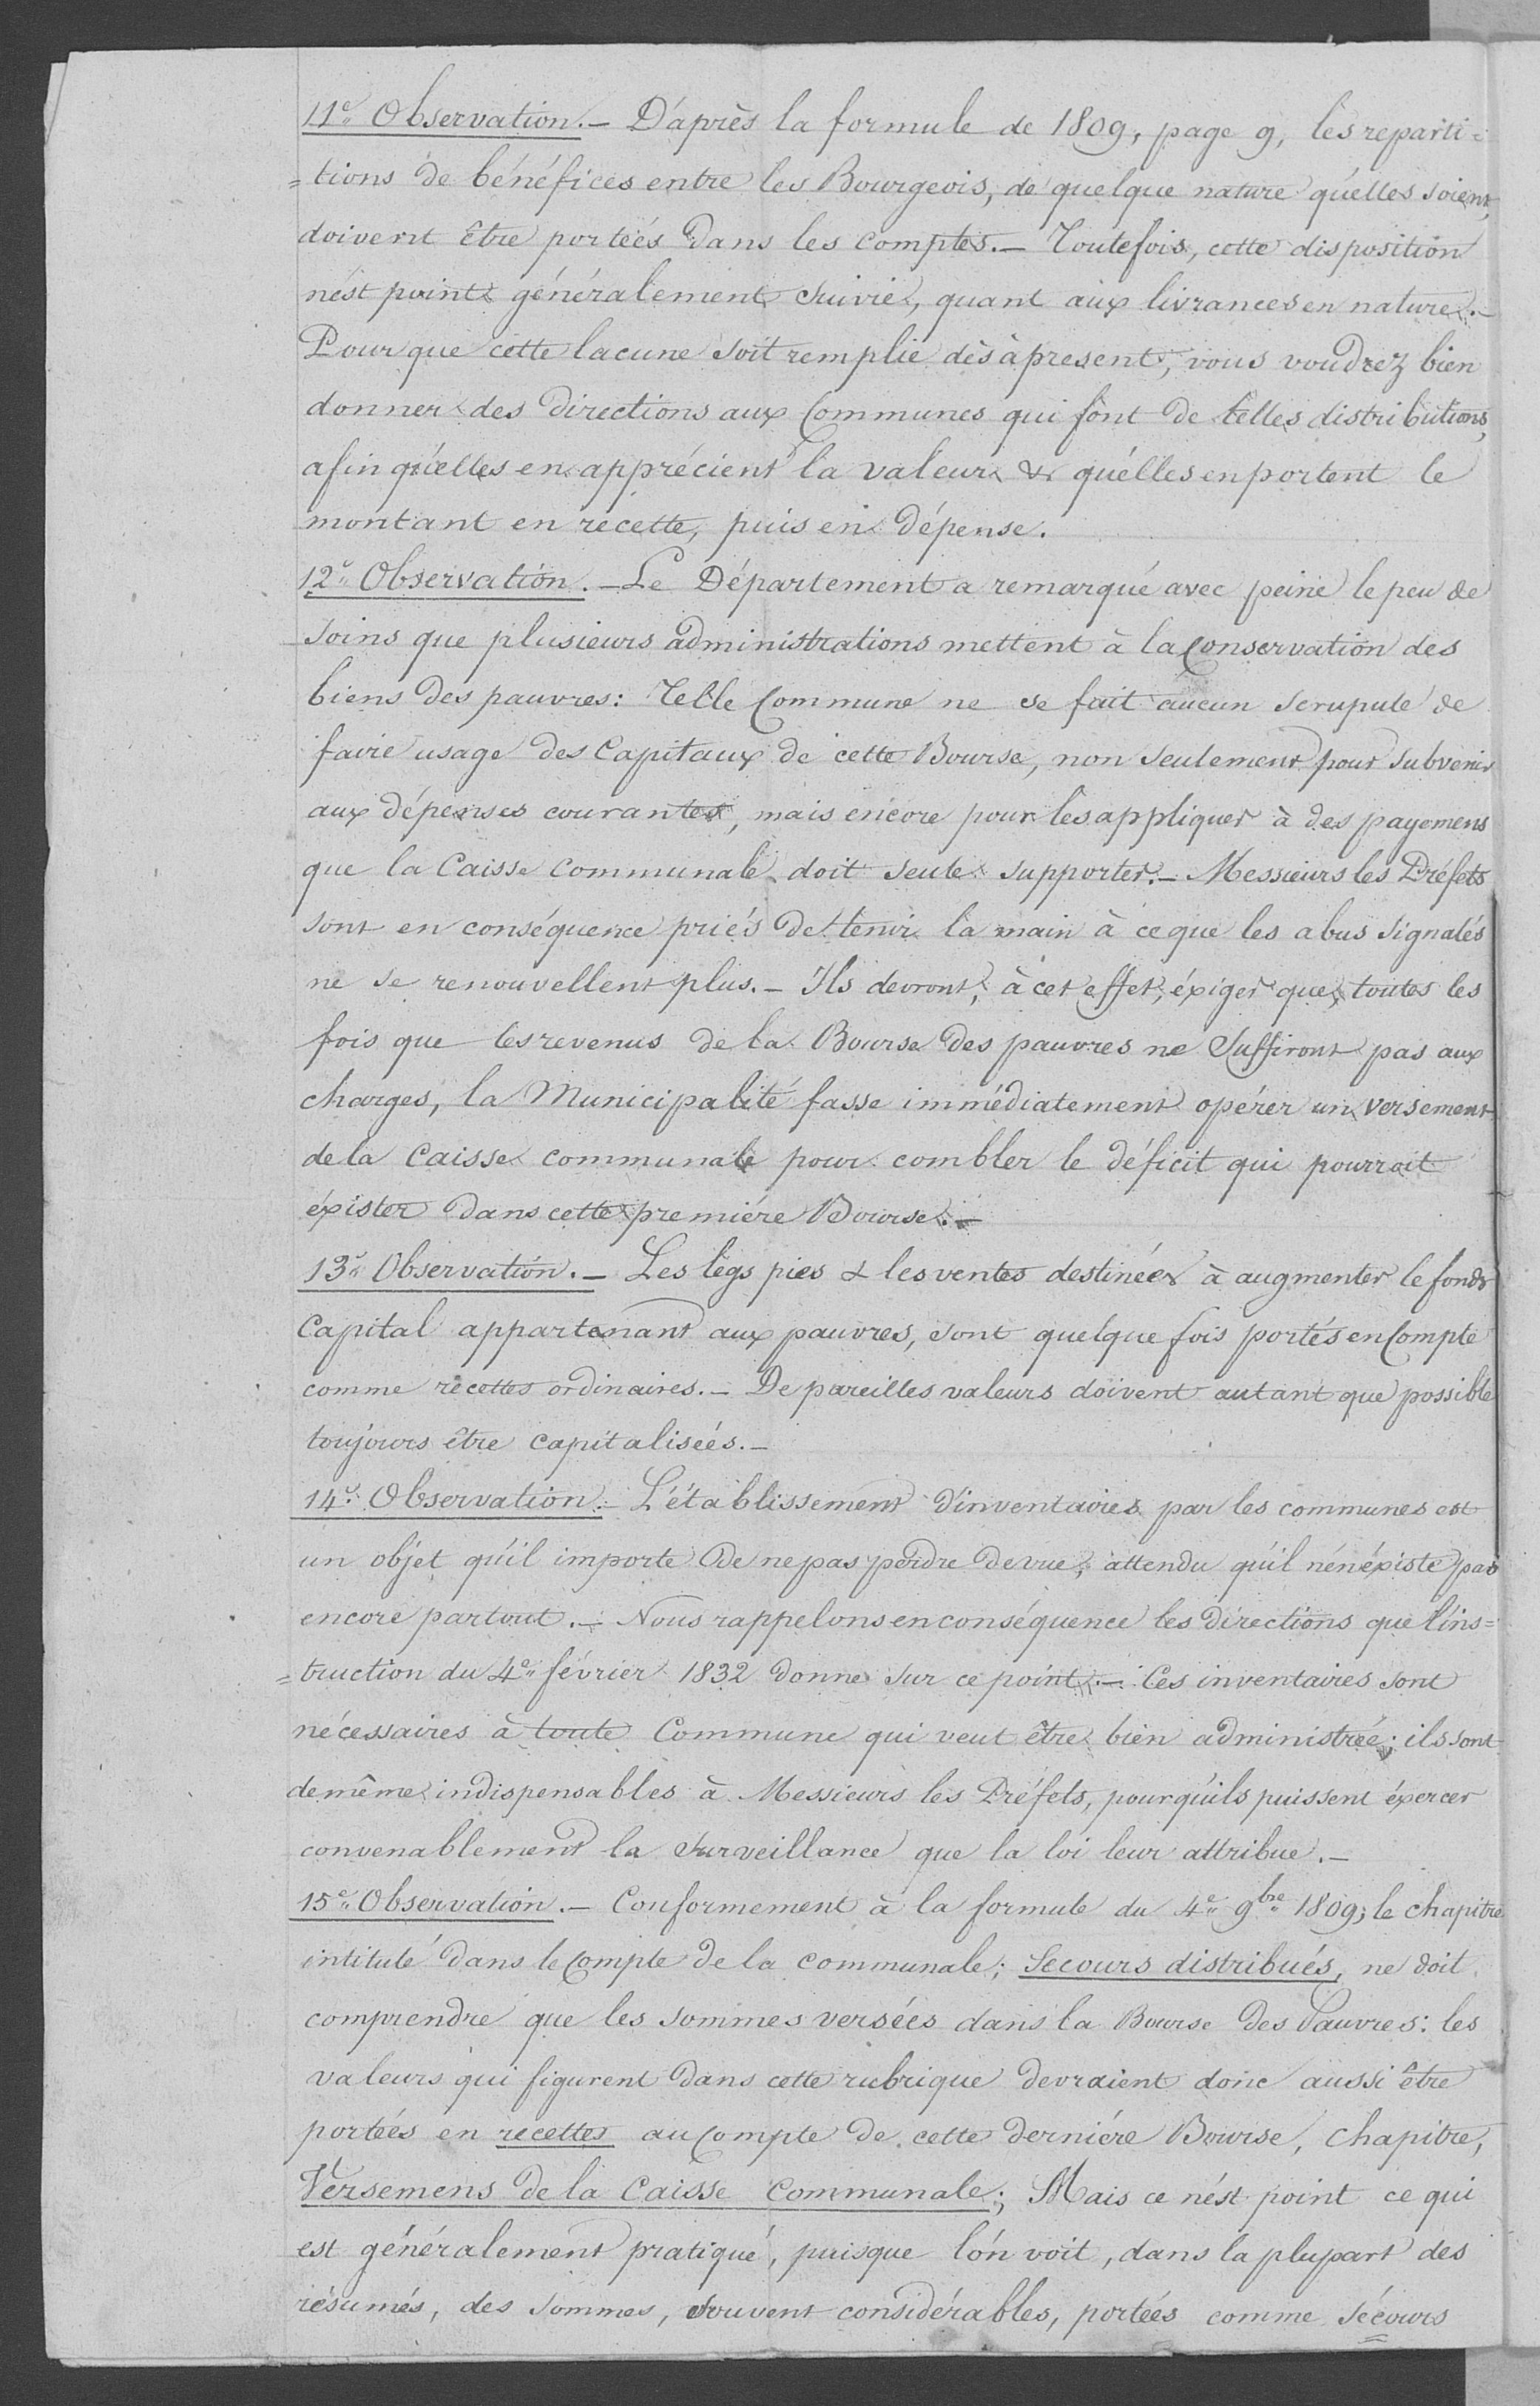 11.e Observation.— D'après la formule de 1809, page 9, les reparti=
=tions de bénéfices entre les Bourgeois, de quelque nature qu'elles soient,
doivent être portées dans les comptes.— Toutefois, cette disposition
n'est point généralement suivie, quant aux livrances en nature.—
Pour que cette lacune soit remplie dès à présent, vous voudrez bien
donner des directions aux Communes qui font de telles distributions,
afin qu'elles en apprécient la valeur & qu'elles en portent le
montant en recette, puis en dépense.
12.e Observation.— Le Département a remarqué avec peine le peu de
soins que plusieurs administrations mettent à la Conservation des
biens des pauvres: Telle Commune ne se fait aucun scrupule de
faire usage des Capitaux de cette Bourse, non seulement pour subvenir
aux dépenses courantes, mais encore pour les appliquer à des payemens
que la Caisse Communale doit seule supporter.— Messieurs les Préfets
sont en conséquence priés de tenir la main à ce que les abus signalés
ne se renouvellent plus.— Ils devront, à cet effet, éxiger que, toutes les
fois que les revenus de la Bourse des pauvres ne suffiront pas aux
charges, la Municipalité fasse immédiatement opérer un versement
de la Caisse communale pour combler le déficit qui pourrait
éxister dans cette première Bourse.—
13.e Observation.— Les legs pies & les ventes destinées à augmenter le fonds
Capital appartenant aux pauvres, sont quelque fois portés en Compte
comme recettes ordinaires.— De pareilles valeurs doivent autant que possible
toujours être capitalisées.—
14.e Observation.— L'établissement d'inventaires par les communes est
un objet qu'il importe de ne pas perdre de vue, attendu qu'il n'en éxiste pas
encore partout.— Nous rappelons en conséquence les directions que l'ins=
=truction du 4.e février 1832 donne sur ce point.— Ces inventaires sont
nécessaires à toute Commune qui veut être bien administrée; ils sont
de même indispensables à Messieurs les Préfets, pour qu'ils puissent éxercer
convenablement la surveillance que la loi leur attribue.—
15.e Observation.— Conformement à la formule du 4.e 9.bre 1809, le chapitre
intitulé dans le Compte de la communale; Secours distribués, ne doit
comprendre que les sommes versées dans la Bourse des Pauvres: les
valeurs qui figurent dans cette rubrique devraient donc aussi être
portées en recettes au Compte de cette dernière Bourse, chapitre,
Versemens de la Caisse Communale; Mais ce n'est point ce qui
est généralement pratiqué, puisque l'on voit, dans la plupart des
résumés, des sommes, souvent considérables, portées comme secours